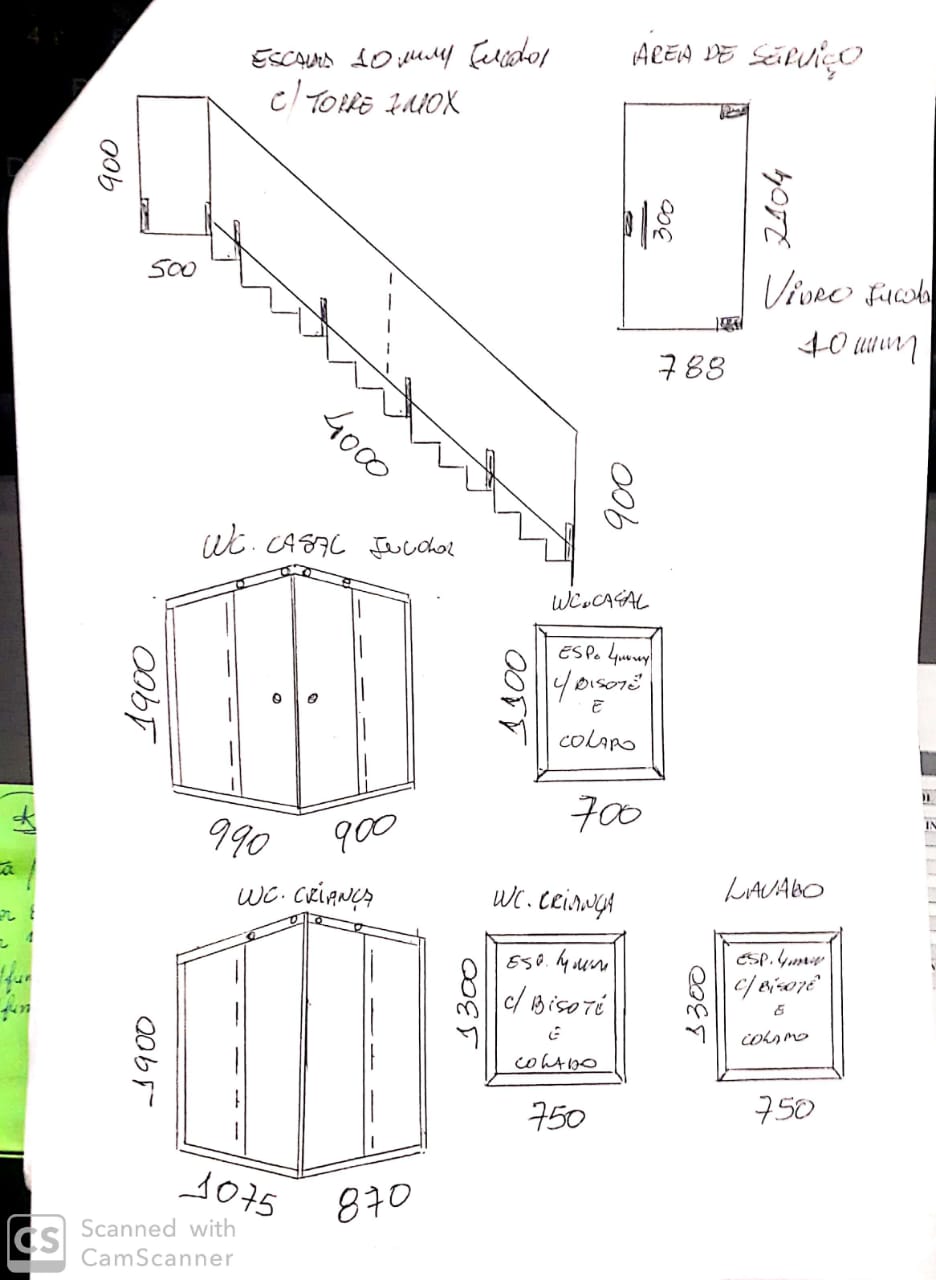 ESCADA 10 mm Incolor
C/ TORRE INOX
900
500
4000
900
ÁREA DE SERVIÇO
300
2104
788
Vidro Incolo
10 mm
WC. CASAL Incolor
1900
990
900
WC. CASAL
ESP. 4mm
C/ BISOTÊ
E
COLADO
1100
700
WC. CRIANÇA
1900
1075
870
WC. CRIANÇA
ESP. 4mm
C/ BISOTÊ
E
COLADO
1300
750
LAVABO
ESP. 4mm
C/ BISOTÊ
E
COLADO
1300
750
CS Scanned with
CamScanner